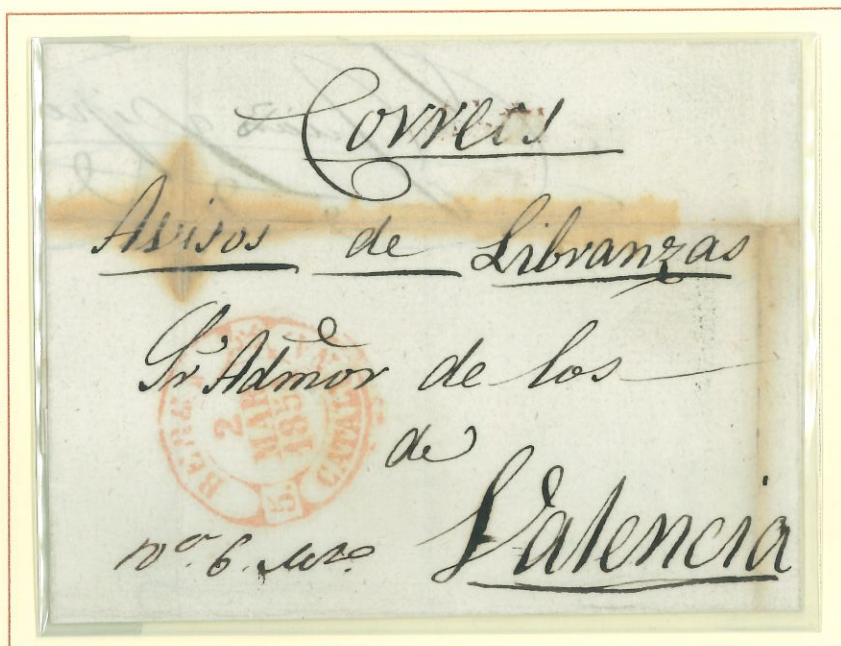 Correos
Avisos de Libranzas
Sr Admor de los
de
Valencia
2
MAR
185
5.
CATAL
6.